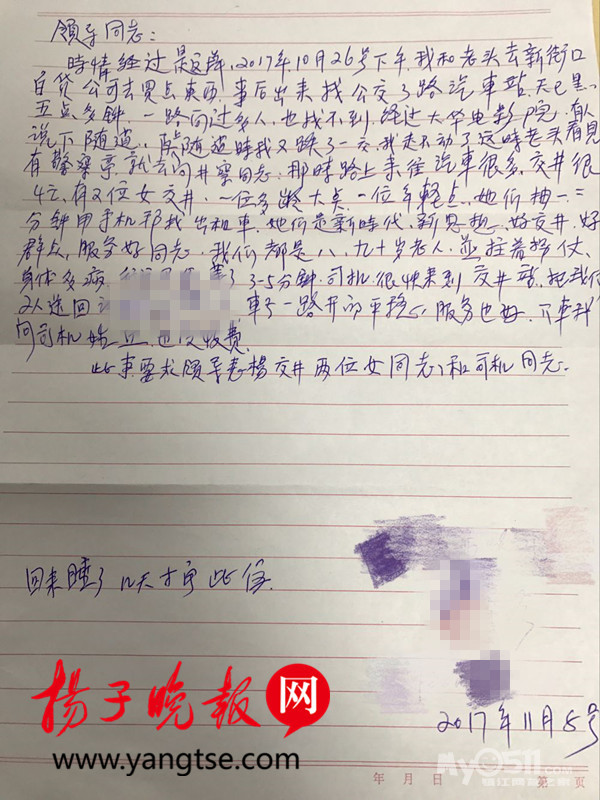 领导同志:
時情经过是这样,2017年10月26号下午,我和老头去新街口
百货公司去買点東西,事后出来找公交3路汽車站,天已黑
五点多钟,一路问过多人,也找不到,经过大华电影院,有人
说下随道,随道時我又跌了一交,我走不动了这時老头看見
有警察亭,就去问井察同志,那時路上来往汽車很多,交井很
忙,有2位女交井,一位年龄大点,一位年輕点,她们抽一二
分钟用手机帮找出租车,她们是新時代,新思想,好交井,好
群众,服务好同志,我们都是八、九十岁老人,並拄着拐仗、
身体多病, 3-5分钟,司机很快来到交井亭,把我们
2人送回 車子一路开的平稳,服务也好,下車我
问司机姓 也没收费.
此事要求领导表楊交井两位女同志和司机同志.
回来腫了几天才写此信.
2017年11月8号
扬子晚报网
www.yangtse.com
年 月 日 第 页
My0511.com